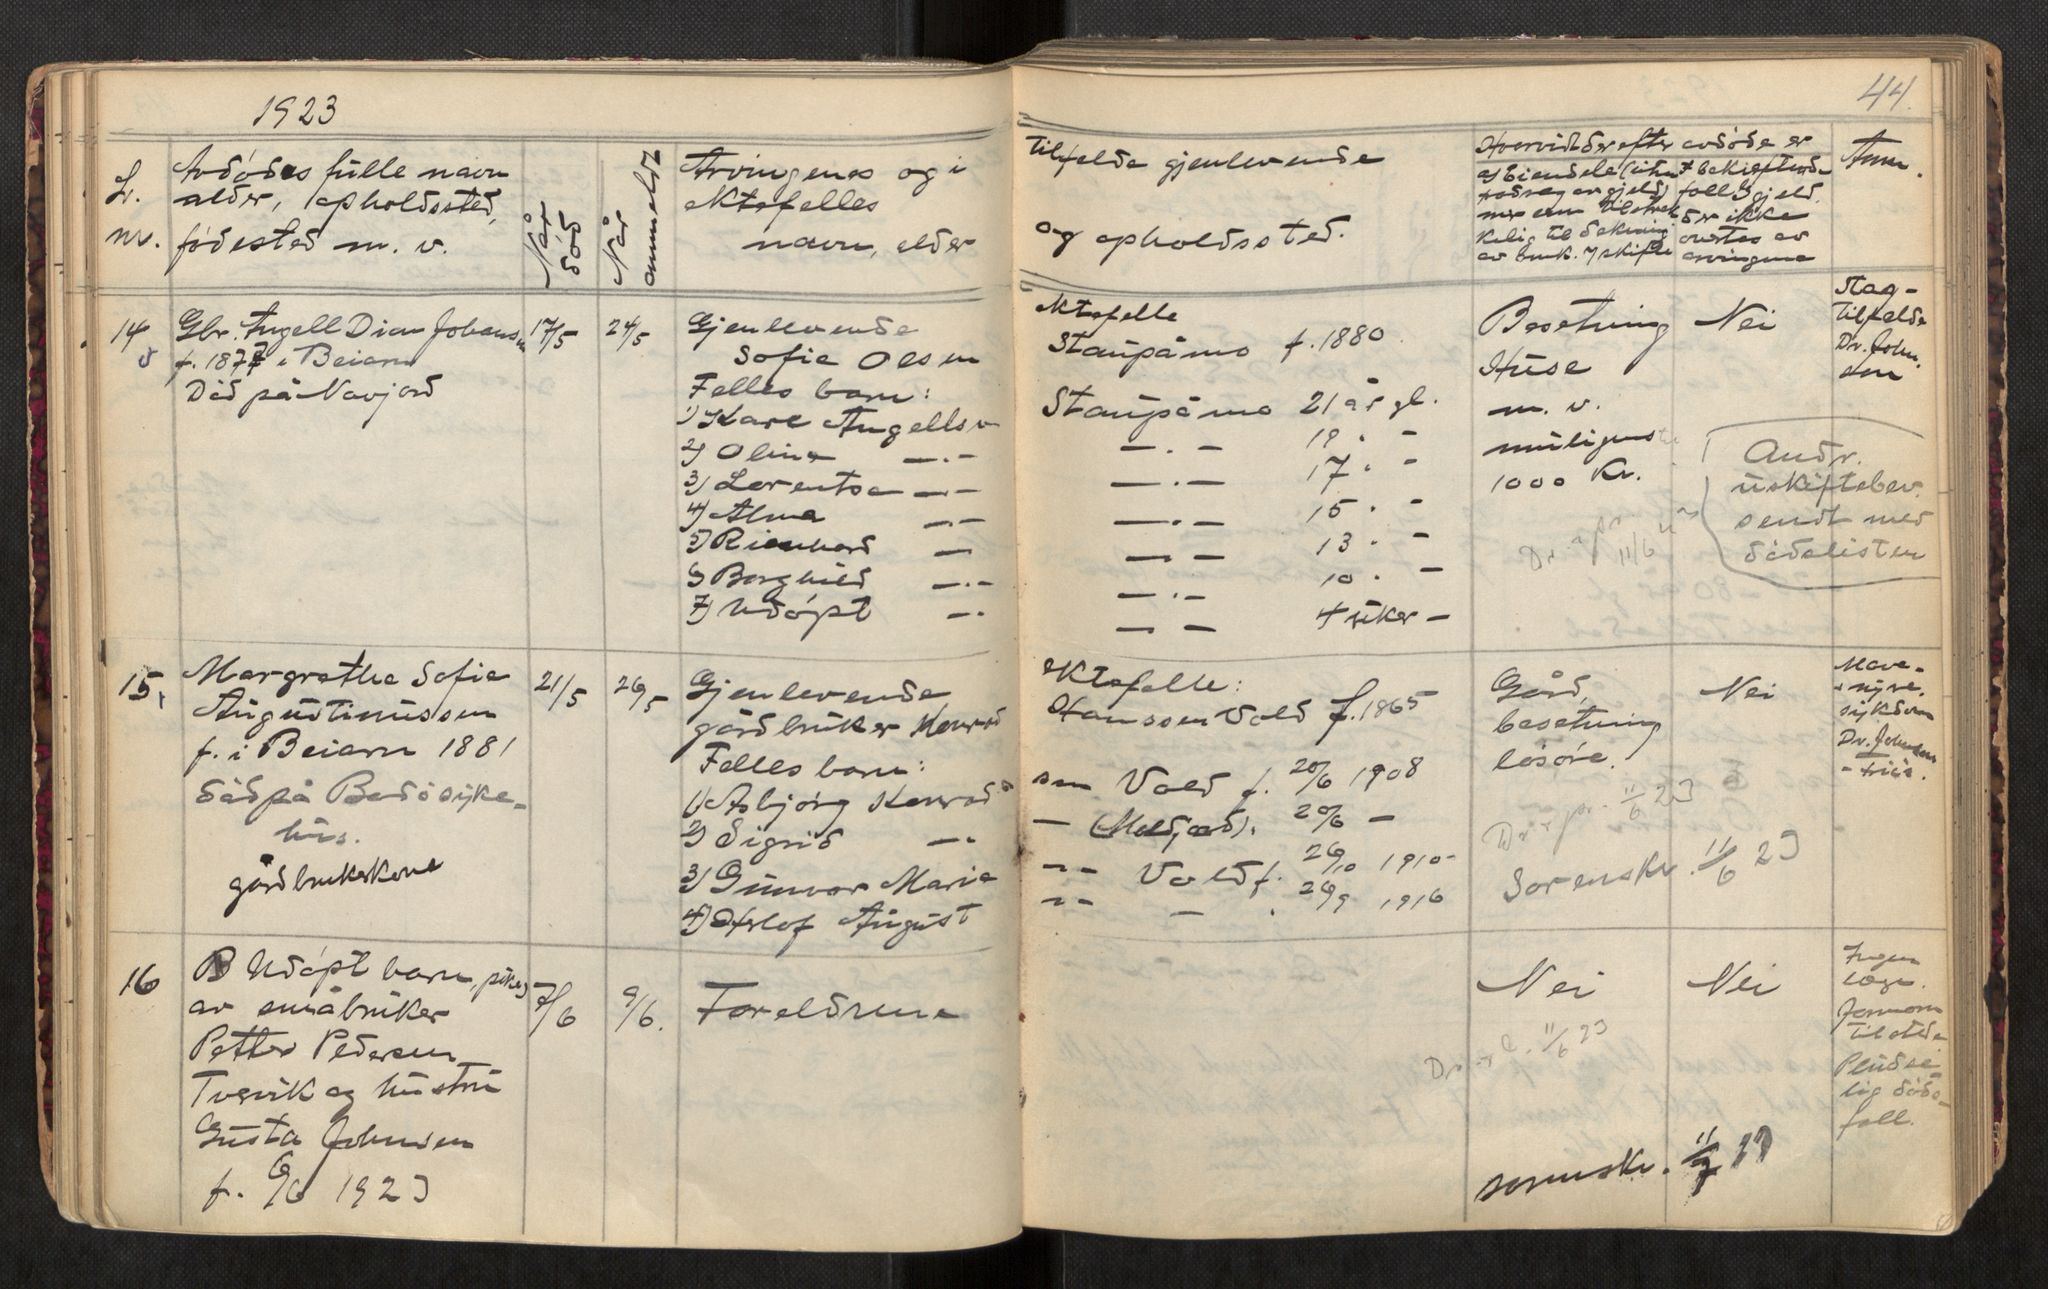 1923
44.
L.
nr.
Avdødes fulle navn
alder, opholdssted,
fødested m. v.
Når
død
Når
anmeldt
Arvingenes og i
ektefelles
navn, alder
tilfelde gjenlevende
og opholdssted.
Hvorvidt der efter avdøde er
av bruk. 7 skifte
arvingene
Anm.
14
Gbr. Angell Dian Johansen
f. 1877 i Beiarn
Død på Navjord
17/5
24/5
Gjenlevende
Sofie Olsen
Felles barn:
1) Kare Angellsen
2) Olina —.—
3) Lorentse —.—
4) Alma —.—
5) Rienhard —
6) Borghild —.—
7) Udøpt —.
Ektefelle
Staupåmo f. 1880.
Staupåmo 21 år gl.
—.— 19 . —
—.— 17 . —
—.— 15 . —
— — 13 . —
—.— 10 . —
— — 4 uker —
Besetning
Huse
m. v.
muligens
1000 Kr.
11/6
Nei
Andr.
uskiftebev.
sendt med
dødslisten
Slag-
tilfelde
Dr. John
sen
15.
Margrethe Sofie
Augustinussen
f. i Beiarn 1881
død på Bodø syke-
hus.
gårdbrukerkone
21/5
26/5
Gjenlevende
gårdbruker Konrad
Felles barn:
1) Asbjørg Konrad
2) Sigrid —.
3) Gunvor Marie
4) Herlof August
Ektefelle:
Hanssen Vold f. 1865
sen Vold f. 20/6 1908
— (Moldjord). 20/6 —
—.— Vold f. 26/10 1910-
—.— — . 26/9 1916
Gård,
besetning
løsøre.
11/6 23
Sorenskr. 11/6 23
Nei
Mave-
nyre.
sykdom
Dr. Johnsen
16
Udøpt barn, pike
av småbruker
Petter Pedersen
Tvervik og hustru
Gusta Johnsen
f. 6/6 1923
7/6
9/6.
Foreldrene
Nei
Nei
11/6 23
sorenskr. 11/7 23
Ingen
læge.
Jormor
tilstede
Pludse
lig døds-
fall.